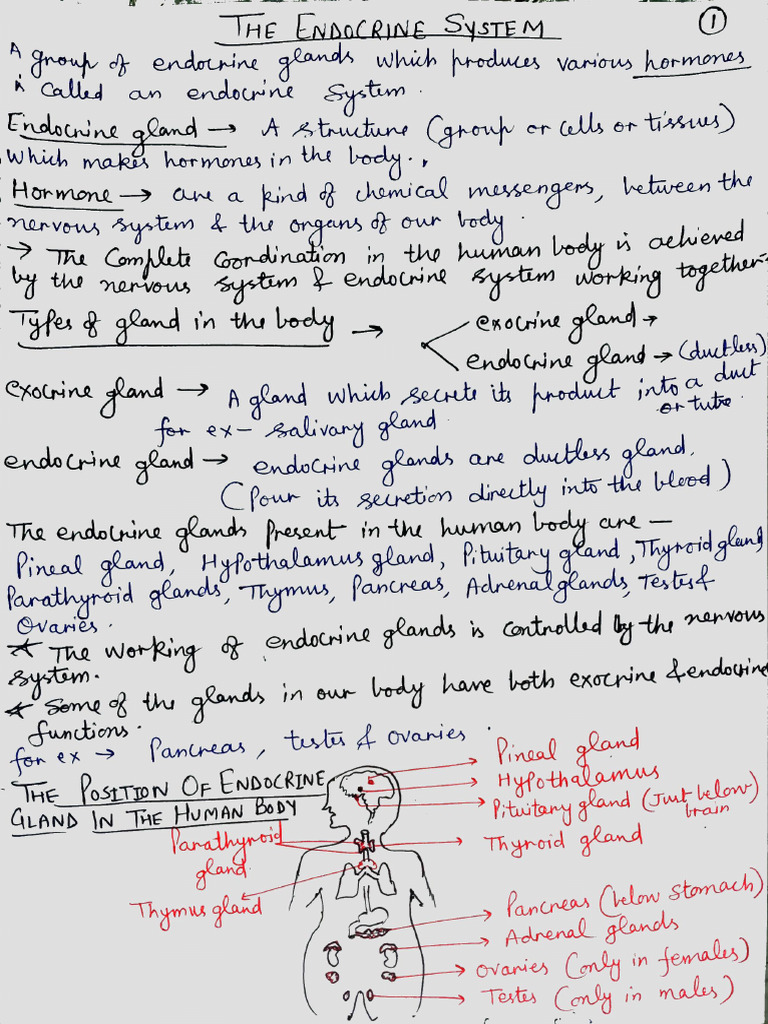 THE ENDOCRINE SYSTEM
1
A group of endocrine glands which produces various hormones
is called an endocrine System.
Endocrine gland → A structure (group or cells or tissues)
which makes hormones in the body.
Hormone → are a kind of chemical messengers, between the
nervous system & the organs of our body.
→ The Complete Coordination in the human body is achieved
by the nervous system & endocrine system working together.
Types of gland in the body →
exocrine gland →
endocrine gland → (ductless)
exocrine gland → A gland which secrete its product into a duct
or tube.
for ex - salivary gland
endocrine gland → endocrine glands are ductless gland.
(Pour its secretion directly into the blood)
The endocrine glands Present in the human body are —
Pineal gland, Hypothalamus gland, Pituitary gland, Thyroid gland
Parathyroid glands, Thymus, Pancreas, Adrenal glands, Testes &
Ovaries.
* The working of endocrine glands is controlled by the nervous
system.
* Some of the glands in our body have both exocrine & endocrine
functions.
for ex → Pancreas, testes & ovaries.
THE POSITION OF ENDOCRINE
GLAND IN THE HUMAN BODY
Pineal gland
Hypothalamus
Pituitary gland (Just below)
brain
Parathyroid
gland
Thyroid gland
Thymus gland
Pancreas (below stomach)
Adrenal glands
Ovaries (only in females)
Testes (only in males)